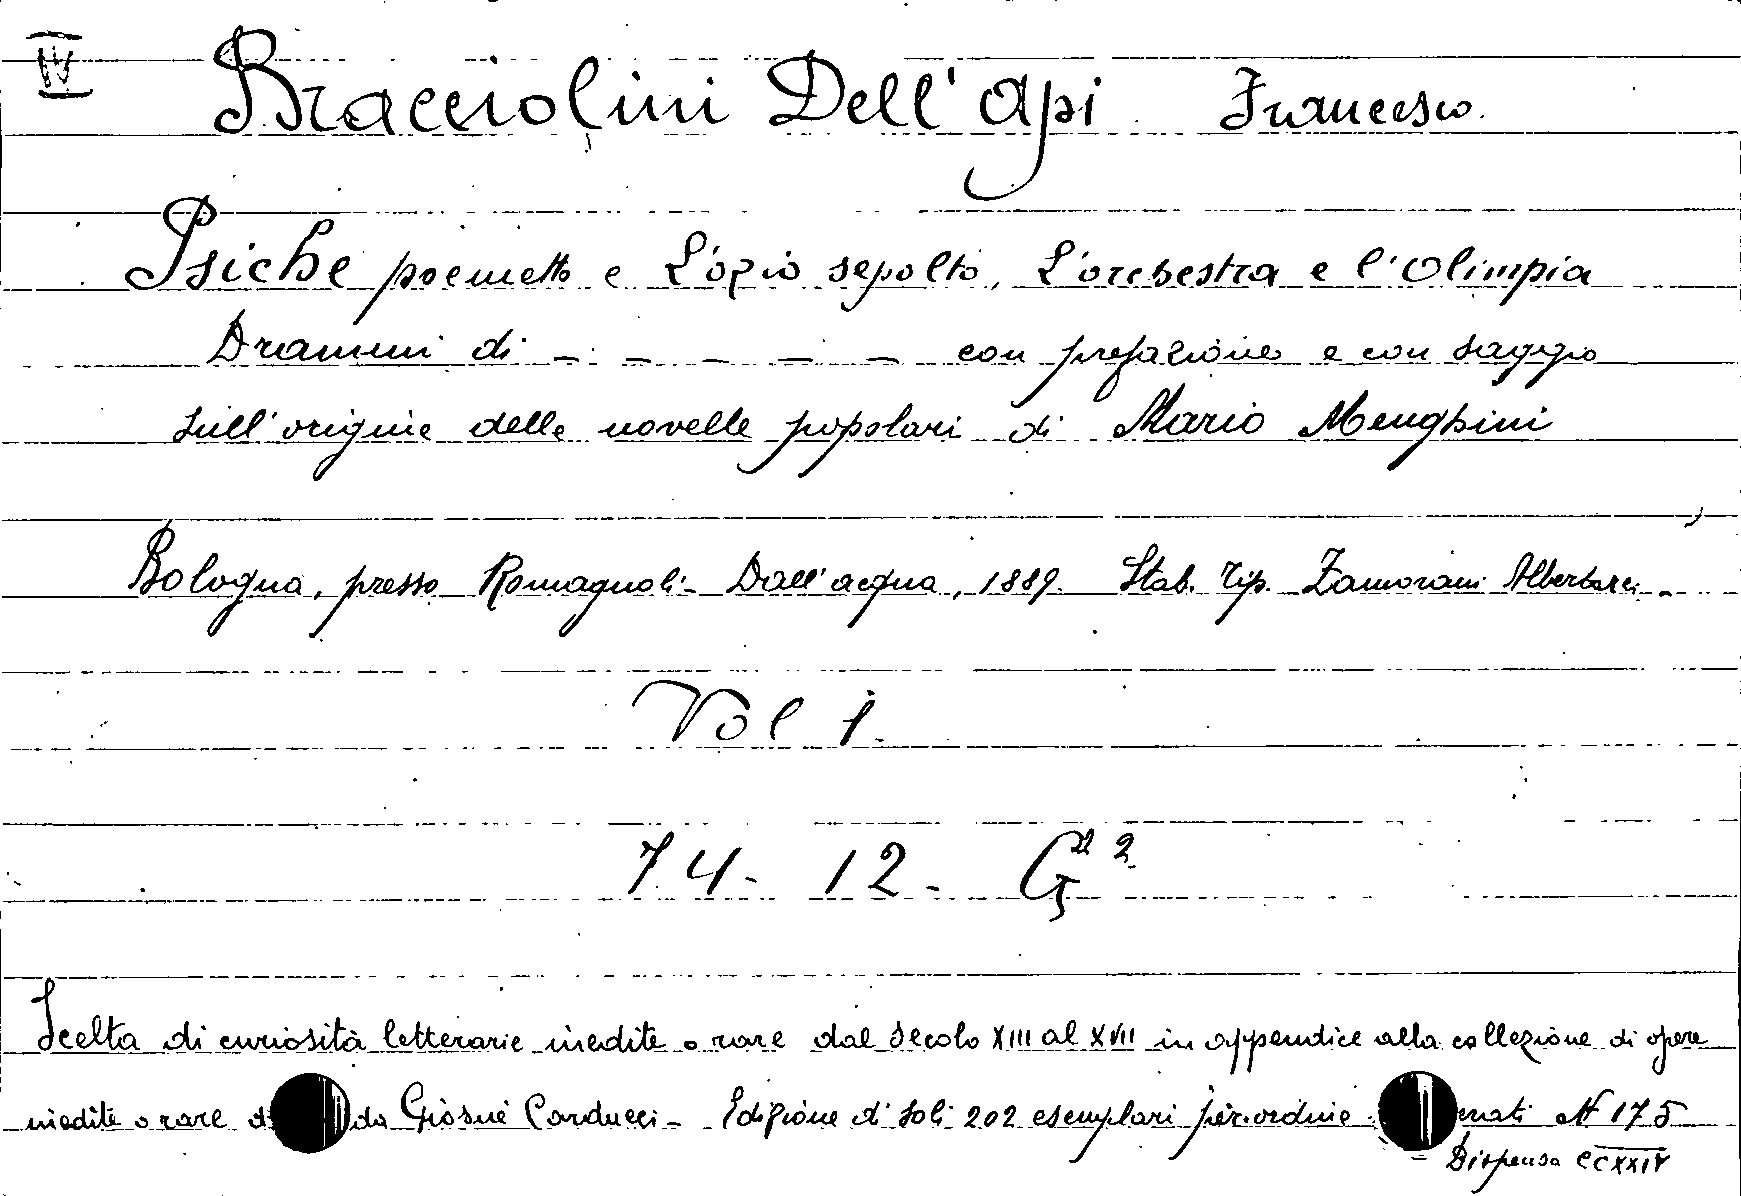 IV
Bracciolini Dell'Api Francesco.
Psiche poemetto e L'ozio sepolto, L'orchestra e l'Olimpia
Drammi di - - - - - con prefazione e con saggio
sull'origine delle novelle popolari di Mario Menghini
Bologna, presso Romagnoli-Dall'acqua, 1889. Stab. Tip. Zamorani Albertazzi -
Vol 1.
74 - 12 - G 2
Scelta di curiosità letterarie inedite o rare dal secolo XIII al XVII in appendice alla collezione di opere
inedite o rare da Giosuè Carducci - Edizione di soli 202 esemplari per ordine nati N 175
Dispensa CCXXIV